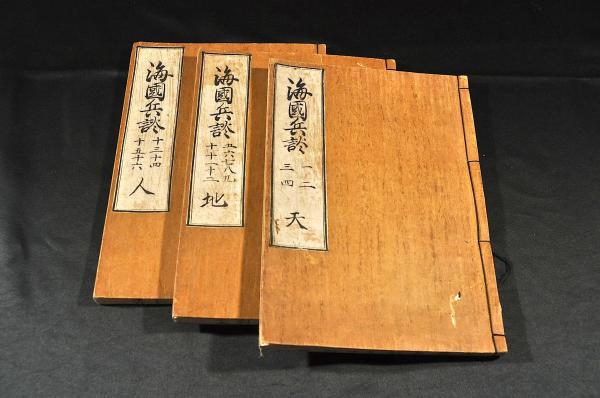 海國兵談
一二
三四
天
海國兵談
五六七八九
十十一十二
地
海國兵談
十三十四
十五十六
人